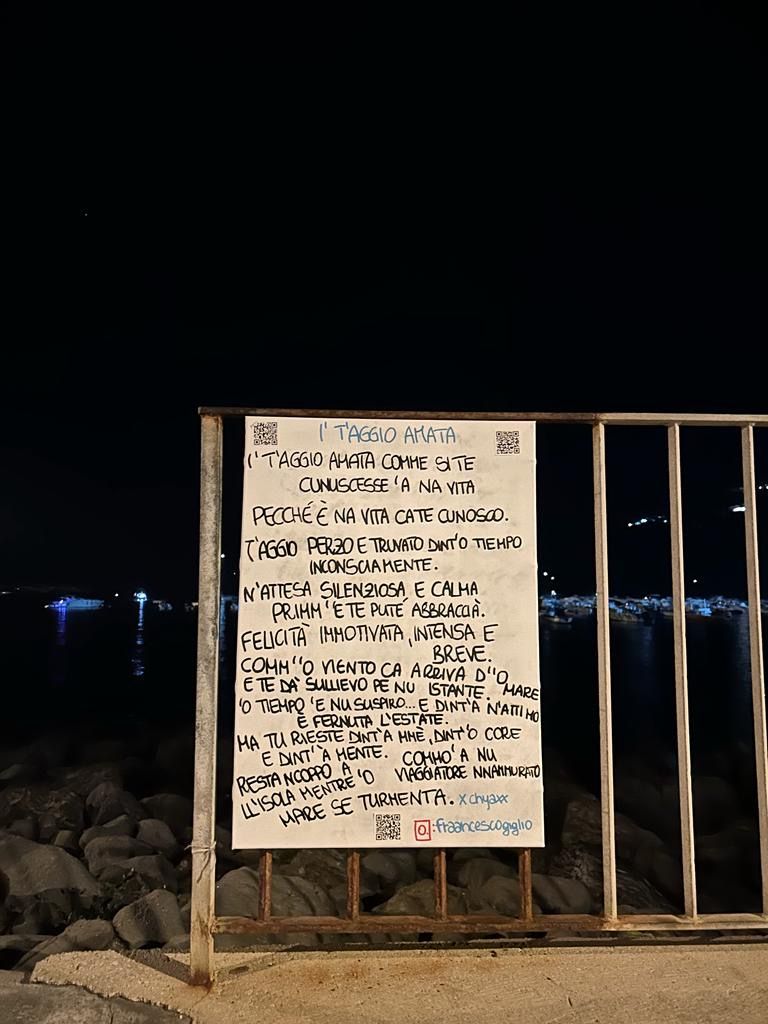 I' T'AGGIO AMATA
I' T'AGGIO AMATA COMME SI TE
CUNUSCESSE 'A NA VITA
PECCHÉ È NA VITA CA TE CUNOSCO.
T'AGGIO PERZO E TRUVATO DINT'O TIEMPO
INCONSCIAMENTE.
N'ATTESA SILENZIOSA E CALMA
PRIMM 'E TE PUTÉ ABBRACCIÀ.
FELICITÀ IMMOTIVATA, INTENSA E
BREVE.
COMM' 'O VIENTO CA ARRIVA D' 'O
MARE
E TE DÀ SULLIEVO PE NU ISTANTE.
'O TIEMPO 'E NU SUSPIRO... E DINT'A N'ATTIMO
È FERNUTA L'ESTATE.
MA TU RIESTE DINT'A MMÈ, DINT'O CORE
E DINT' 'A MENTE. COMMO' A NU
VIAGGIATORE NNAMMURATO
RESTA NCOPPO A
LL'ISOLA MENTRE 'O
MARE SE TURMENTA. x chyaxx
:fraancescogiglio